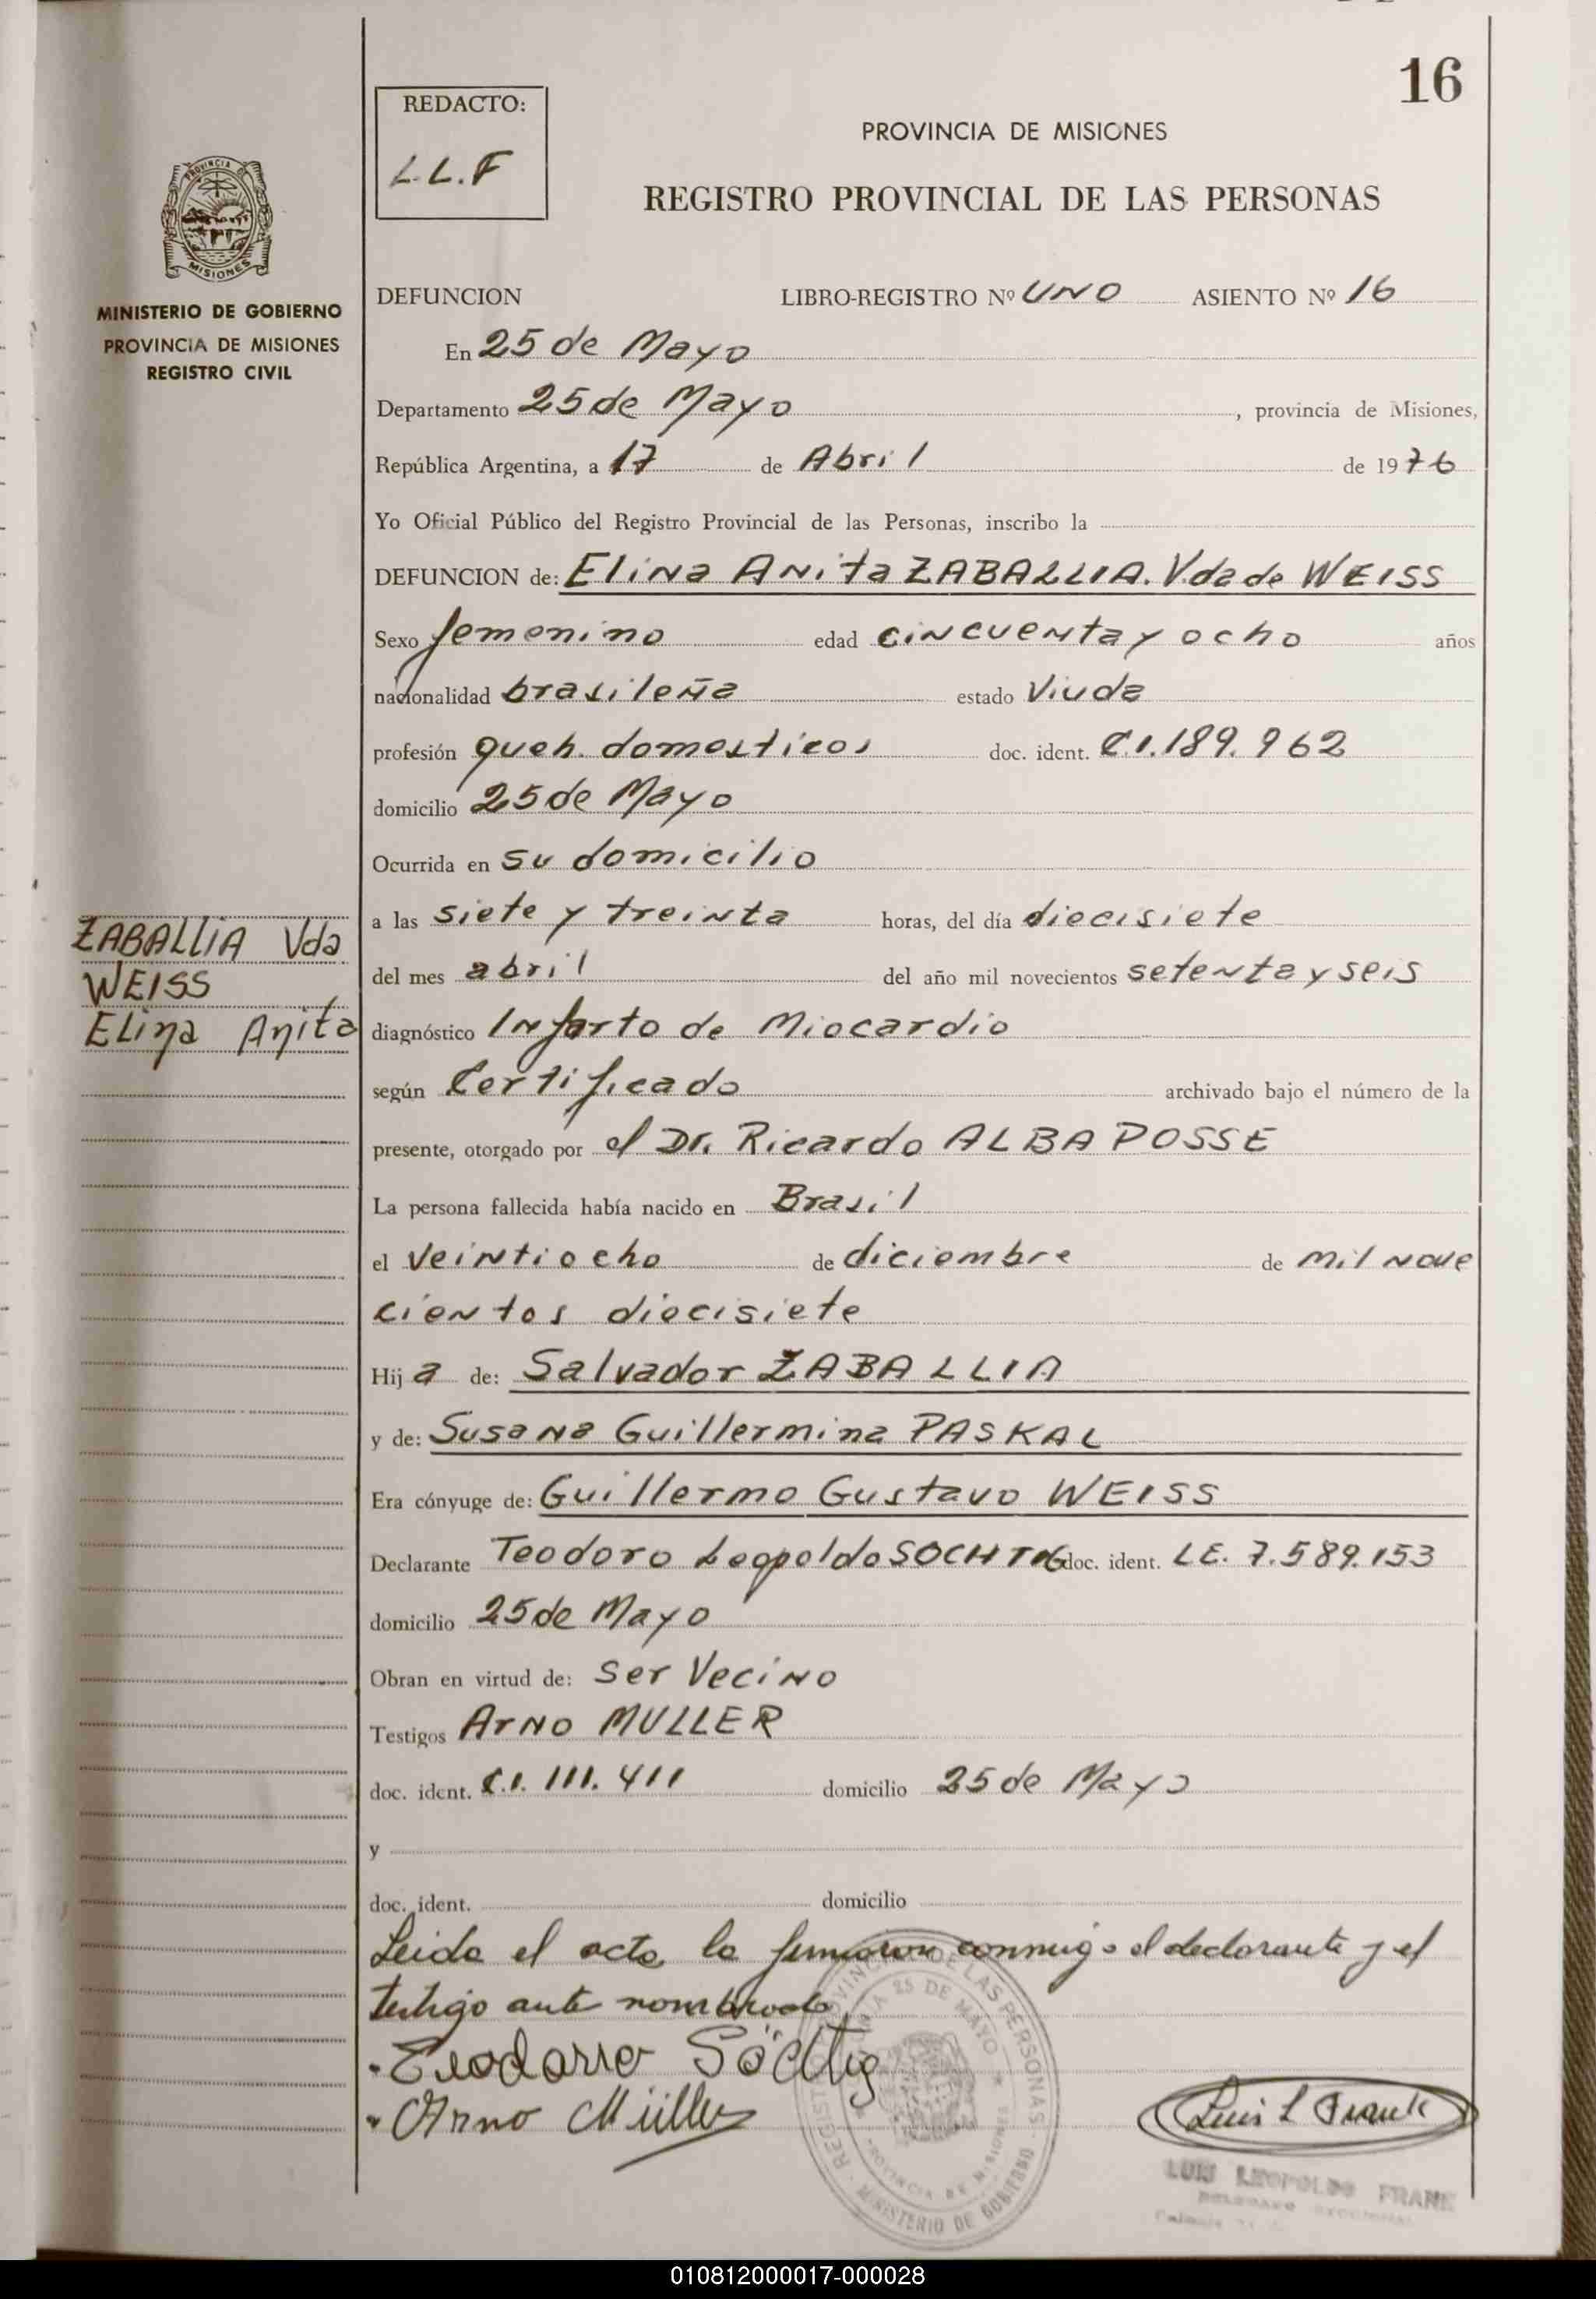 16
REDACTO:
L.L.F
PROVINCIA DE MISIONES
REGISTRO PROVINCIAL DE LAS PERSONAS
PROVINCIA DE
MISIONES
MINISTERIO DE GOBIERNO
PROVINCIA DE MISIONES
REGISTRO CIVIL
DEFUNCION LIBRO-REGISTRO Nº UNO ASIENTO Nº 16
En 25 de Mayo
Departamento 25 de Mayo, provincia de Misiones,
República Argentina, a 17 de Abril de 1976
Yo Oficial Público del Registro Provincial de las Personas, inscribo la
DEFUNCION de: Elina Anita ZABALLIA. Vda de WEISS
Sexo femenino edad cincuenta y ocho años
nacionalidad brasileña estado Viuda
profesión queh. domesticos doc. ident. C.I. 189.962
domicilio 25 de Mayo
Ocurrida en su domicilio
a las siete y treinta horas, del día diecisiete
del mes abril del año mil novecientos setenta y seis
ZABALLIA Vda
WEISS
Elina Anita
diagnóstico Infarto de Miocardio
según Certificado archivado bajo el número de la
presente, otorgado por el Dr. Ricardo ALBA POSSE
La persona fallecida había nacido en Brasil
el veintiocho de diciembre de mil nove
cientos diecisiete
Hija de: Salvador ZABALLIA
y de: Susana Guillermina PASKAL
Era cónyuge de: Guillermo Gustavo WEISS
Declarante Teodoro Leopoldo SOCHTIG doc. ident. L.E. 7.589.153
domicilio 25 de Mayo
Obran en virtud de: Ser Vecino
Testigos Arno MULLER
doc. ident. C.I. 111.411 domicilio 25 de Mayo
y
doc. ident. domicilio
Leida el acta, la firmaron conmigo el declarante y el
testigo ante nombrado
Teodorro Söchtig
Arno Müller
Luis L Frank
REGISTRO PROVINCIAL DE LAS PERSONAS
25 DE MAYO
PROVINCIA DE MISIONES
MINISTERIO DE GOBIERNO
LUIS LEOPOLDO FRANK
010812000017-000028